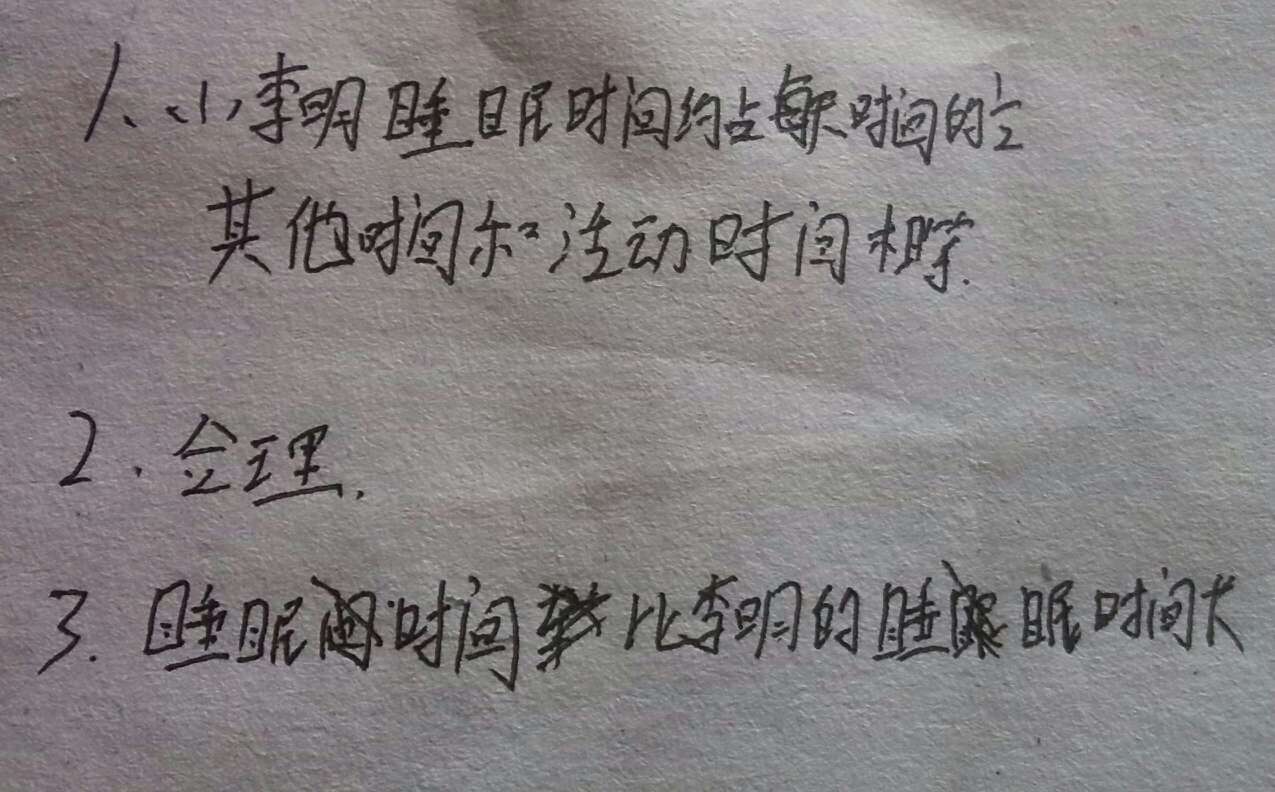 1、小李明睡眠时间约占每天时间的1/2
其他时间和活动时间相等.
2.合理.
3.睡眠时间比李明的睡眠时间长